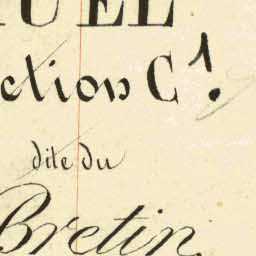 UEL
ction C¹.
dite du
Bretin